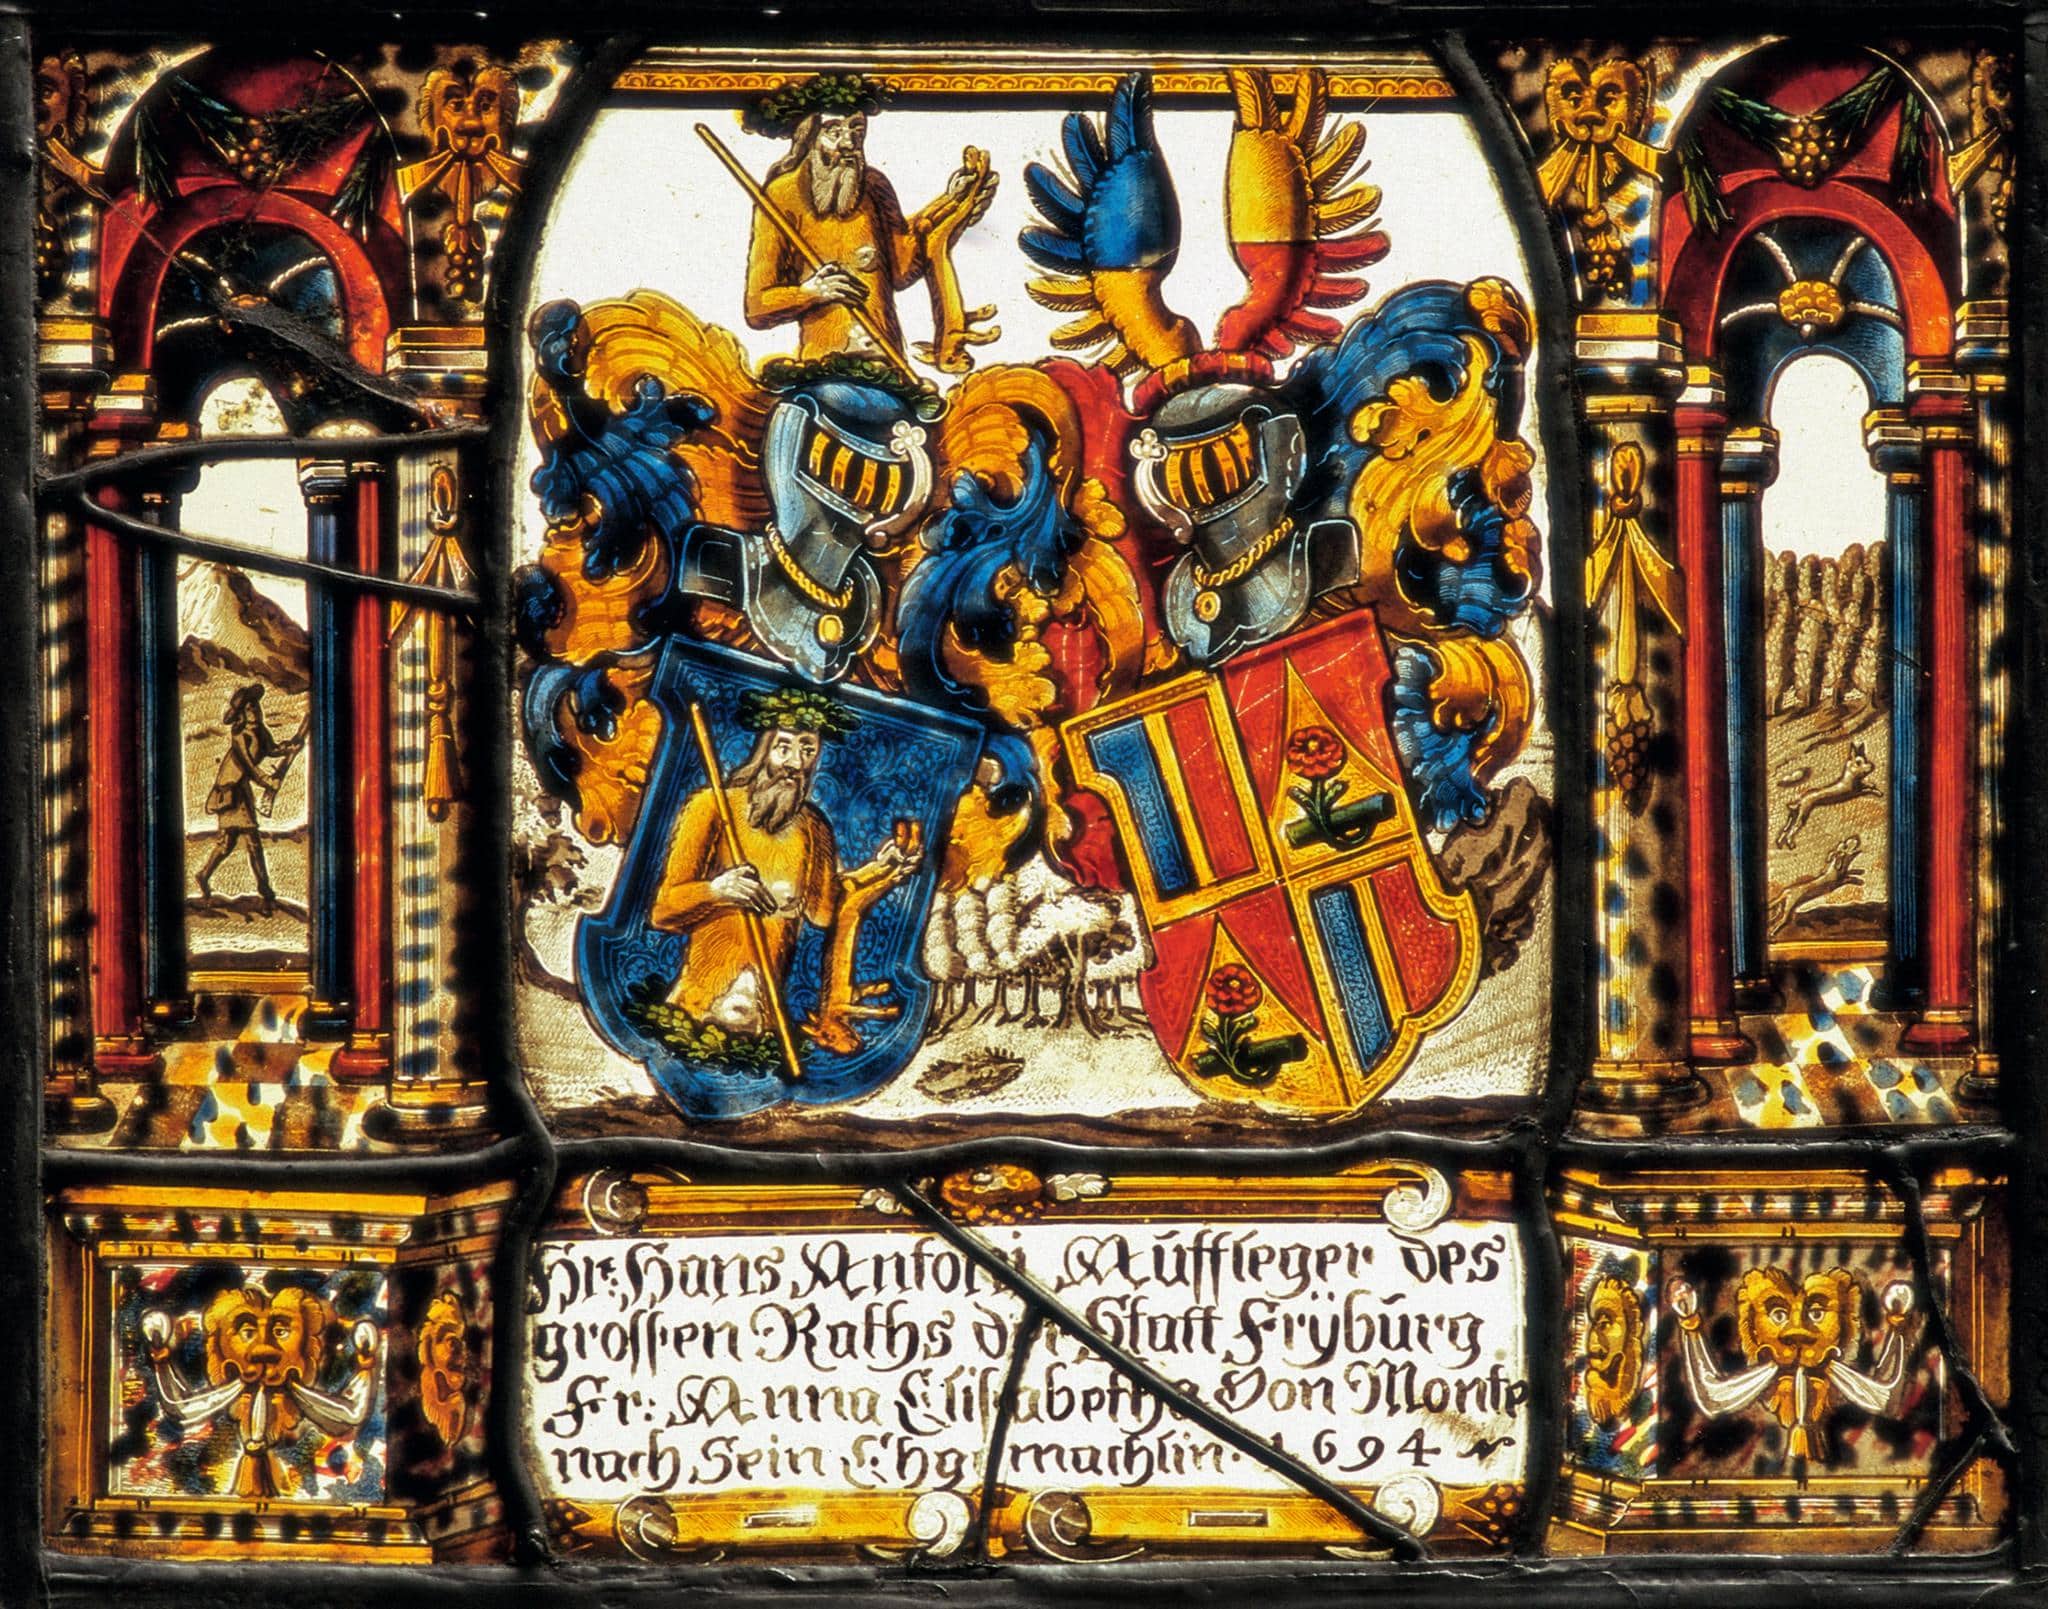 Hr: Hans Antoni Auffleger des
grossen Raths der Statt Frÿburg
Fr: Anna Elisabetha Von Monte
nach Sein Ehgemachlin. 1694